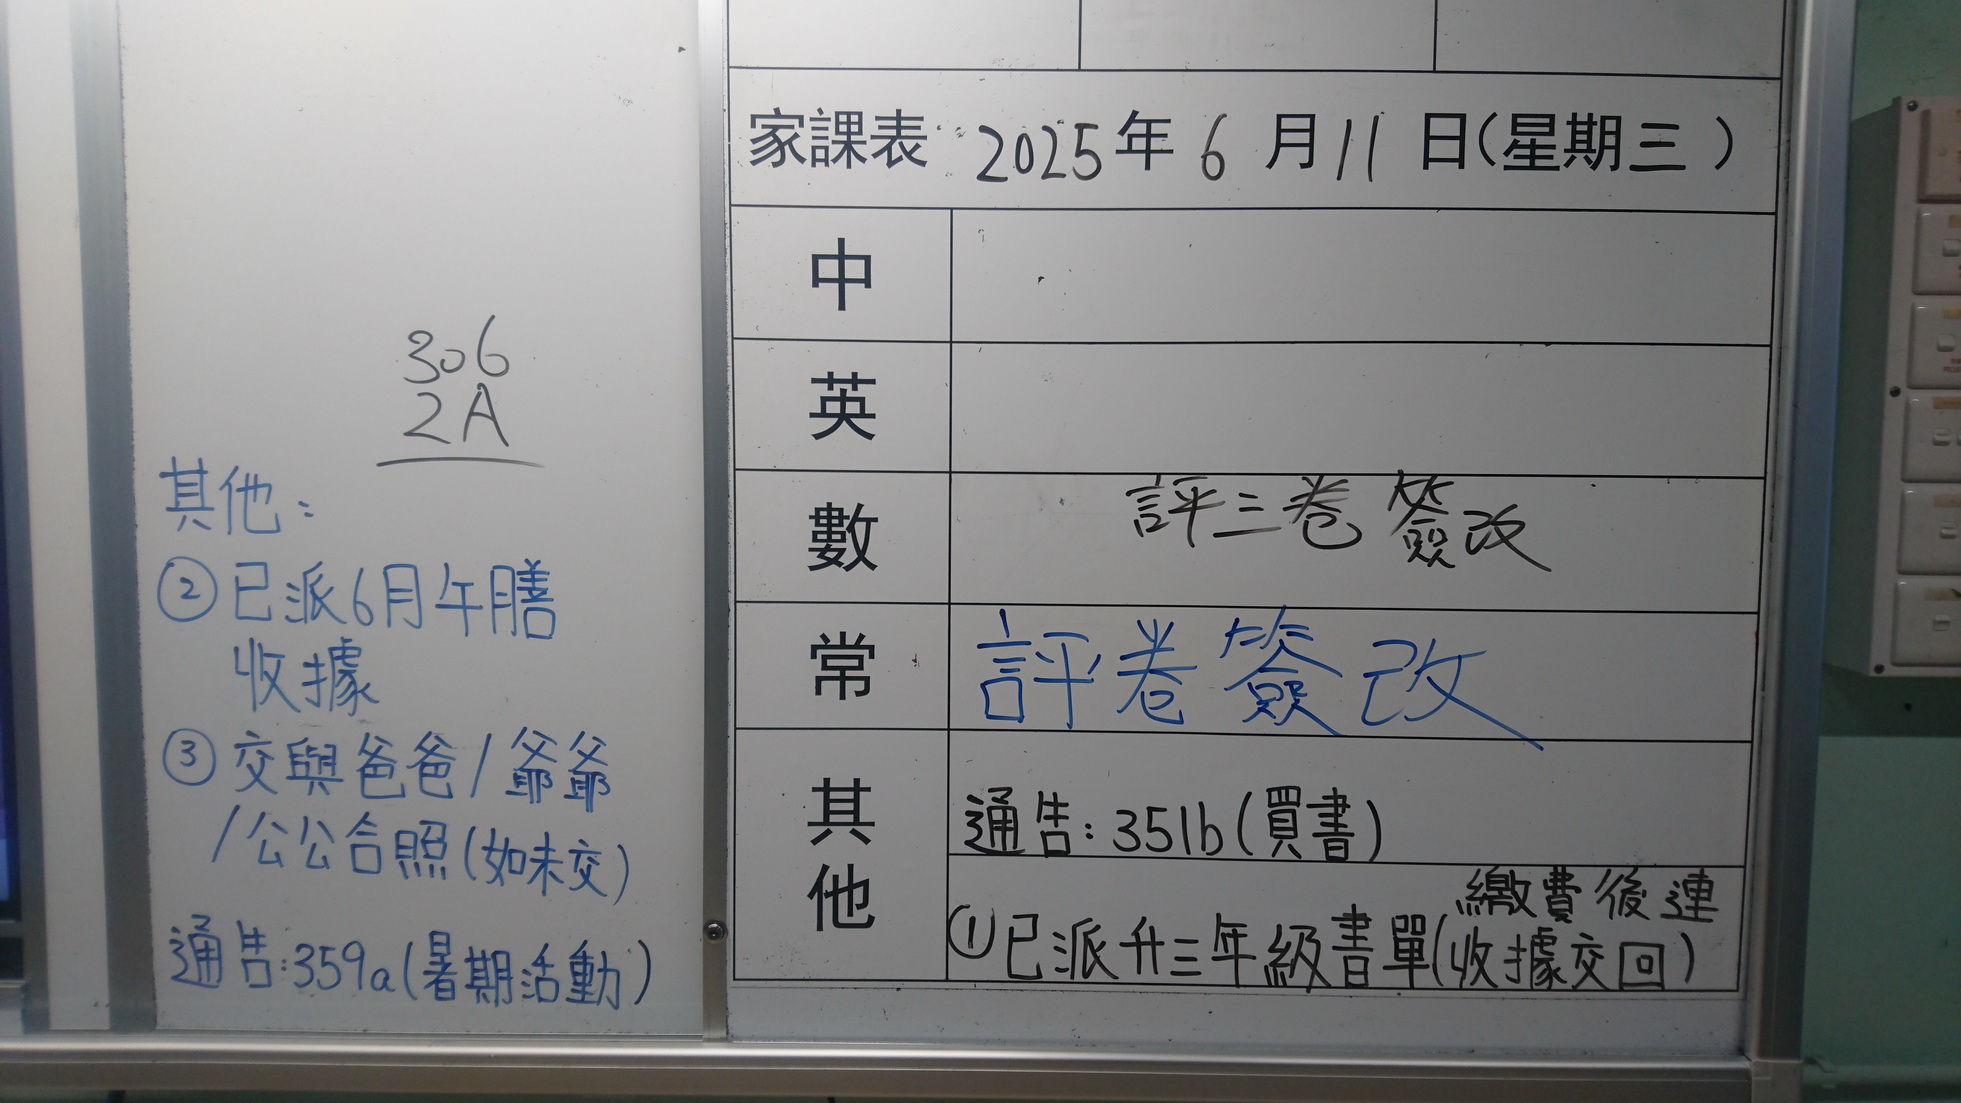 306
2A
其他：
②已派6月午膳
收據
③交與爸爸/爺爺
/公公合照(如未交)
通告:359a(暑期活動)
家課表 2025年6月11日(星期三)
中
英
數 評三卷簽改
常 評卷簽改
其他
通告:351b(買書)
繳費後連
①已派升三年級書單(收據交回)